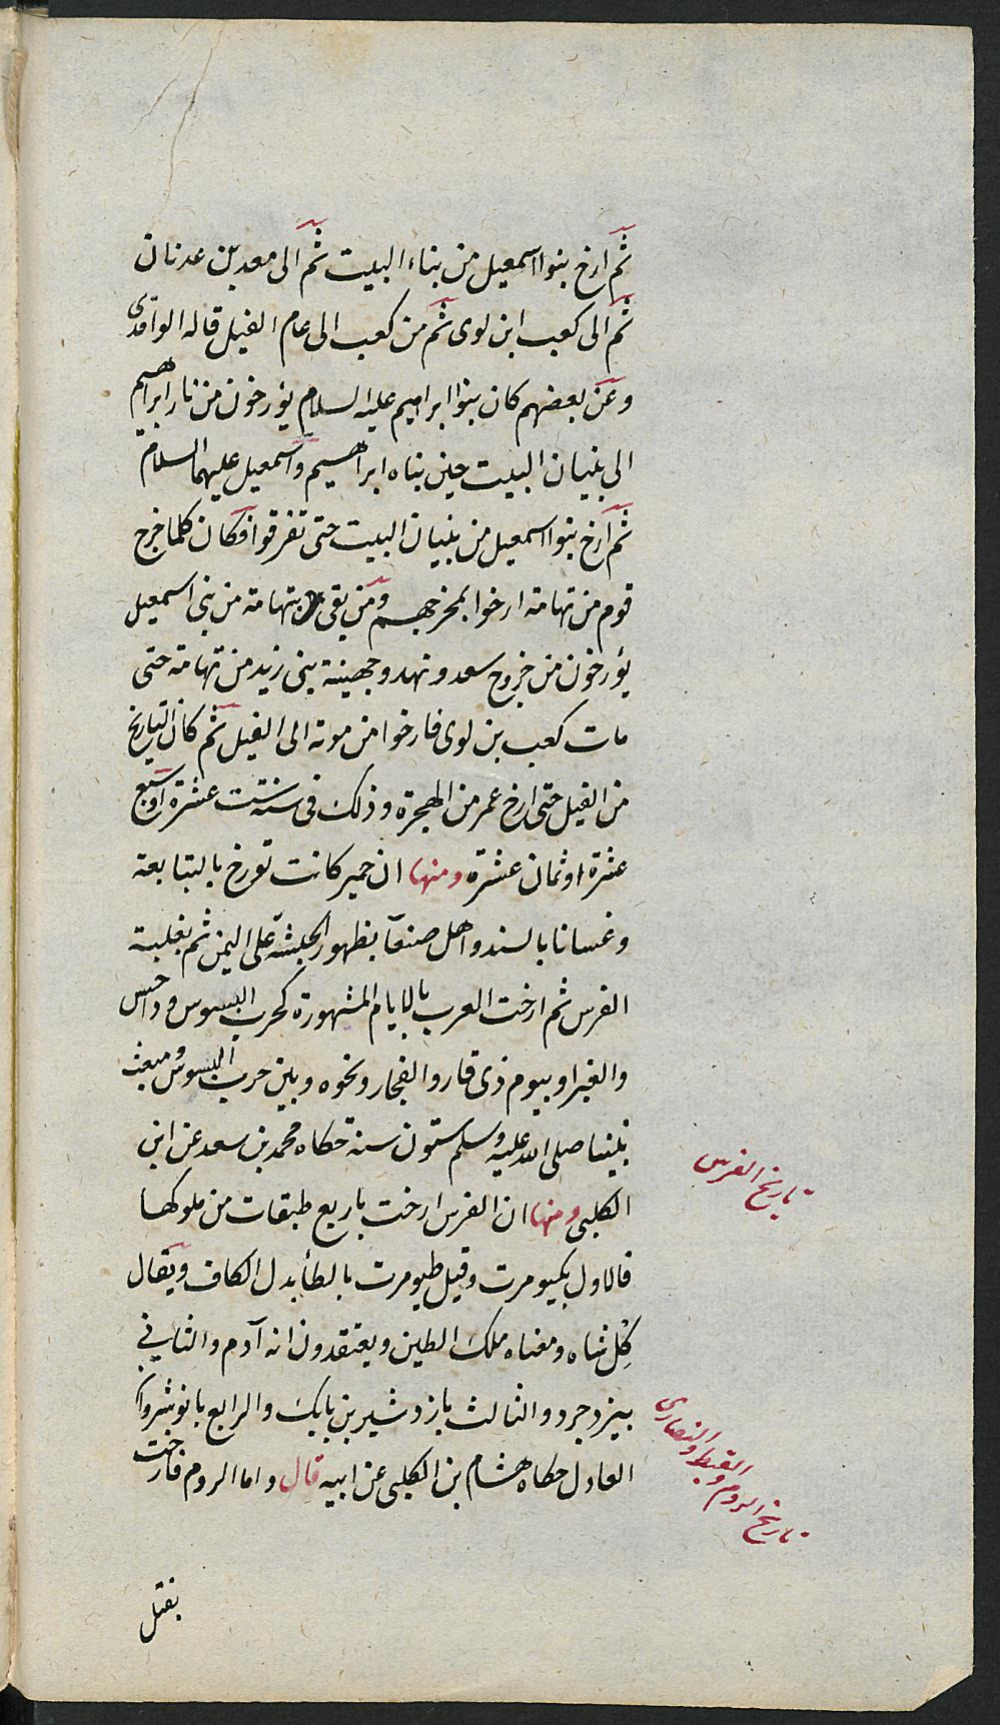 ثم ارخ بنوا اسمعيل من بناء البيت ثم الى معد بن عدنان
ثم الى كعب ابن لوى ثم من كعب الى عام الفيل قاله الواقدى
وعن بعضهم كان بنوا ابراهيم عليه السلام يؤرخون من نار ابراهيم
الى بنيان البيت حين بناه ابراهيم واسمعيل عليهما السلام
ثم ارخ بنوا اسمعيل من بنيان البيت حتى تفرقوا فكان كلما خرج
قوم من تهامة ارخوا بمخرجهم ومن بقى بتهامة من بنى اسمعيل
يؤرخون من خروج سعد ونهد وجهينة بنى زيد من تهامة حتى
مات كعب بن لوى فارخوا من موته الى الفيل ثم كان التاريخ
من الفيل حتى ارخ عمر من الهجرة وذلك فى سنة ست عشرة اوسبع
عشرة اوثمان عشرة ومنها ان حمير كانت تورخ بالتبابعة
وغسانا بالسند واهل صنعآ بظهور الحبشة على اليمن ثم بغلبة
الفرس ثم ارخت العرب بالايام المشهورة كحرب البسوس وداحس
والغبرا وبيوم ذى قار والفجار ونحوه وبين حرب البسوس ومبعث
نبينا صلى الله عليه وسلم ستون سنة حكاه محمد بن سعد عن ابن
الكلبى ومنها ان الفرس ارخت باربع طبقات من ملوكها
فالاول بكيومرت وقيل طيومرت بالطأ بدل الكاف ويقال
كِل شاه ومعناه ملك الطين ويعتقدون انه آدم والثاني
بيزدجرد والثالث بازدشير بن بابك والرابع بانوشروان
العادل حكاه هشام بن الكلبى عن ابيه قال واما الروم فارخت
بقتل
تاريخ الفرس
تاريخ الروم والقبط والنصارى